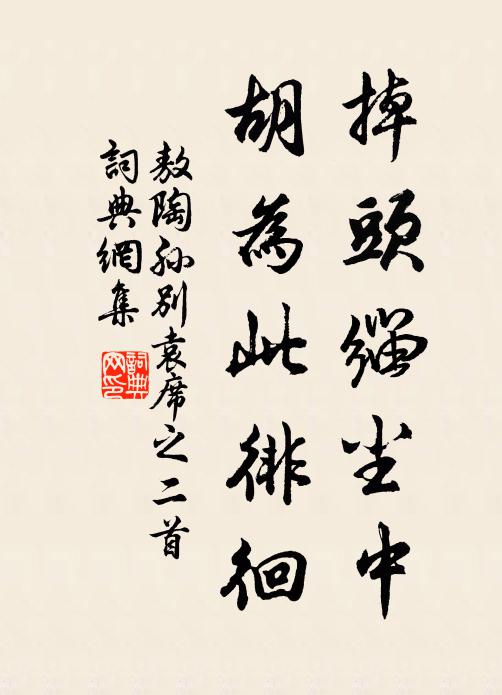 掉頭緇尘中
胡為此徘徊
敖陶孙別袁席之二首
詞典網集
詞典
网印